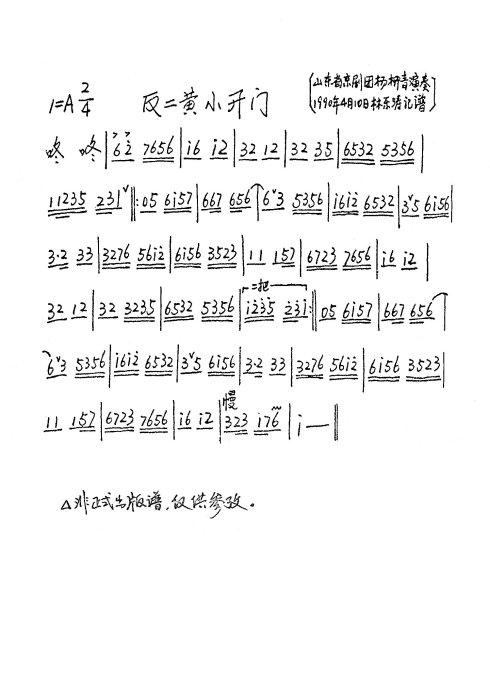 1=A 2/4 反二黄小开门 (山东省京剧团杨柳青演奏)
(1990年4月10日林东榰记谱)
咚 咚 | 6 2̇ 7656 | i̇6 i̇2 | 32 12 | 32 35 | 6532 5356 |
11235 231ˇ ‖: 05 6i̇57 | 667 656 | 6ˇ3 5356 | i̇6i̇2̇ 6532 | 3ˇ5 6i̇56 |
3·2 33 | 3276 56i̇2̇ | 6i̇56 3523 | 11 157 | 6723 7656 | i̇6 i̇2 |
32 12 | 32 3235 | 6532 5356 | 二把 i̇2̇3̇5̇ 2̇3̇i̇ :‖ 05 6i̇57 | 667 656 |
6ˇ3 5356 | i̇6i̇2̇ 6532 | 3ˇ5 6i̇56 | 3·2 33 | 3276 56i̇2̇ | 6i̇56 3523 |
慢
11 157 | 6723 7656 | i̇6 i̇2 | 323 i̇76 | i̇ — ‖
△非正式出版谱，仅供参改。